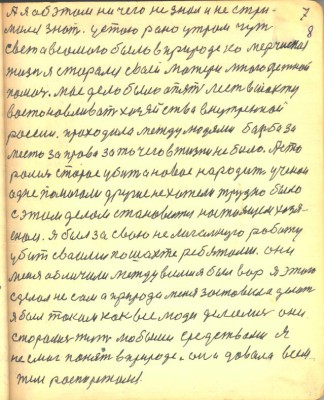 7
8
А я об этом ни чего не знал и не стре-
мился знат. устою рано утром чут
света в самого было в природе ко
жизня старался своей матери многодетной
помоч. мое дело было опят лест в шахту
востонавливат хозяйства внутреной
росии. проходила между людями барба за
место за права за то чего в жизни не было.
роился старое убит а новое народит. ученои
одне помогали другие не хотели трудно было
с этом делом становится настоящем хозя-
еном. я был за свою не легальную работу
убит своеими по шахте ребятоми. они
меня обличили между всеми я был вор я этого
сделал не сам а природа меня заставила делат
я был таком как все люди делали они
старалис жит любыми средствами я
не смог понят в природе. она довала всем
тем распиряжоню.